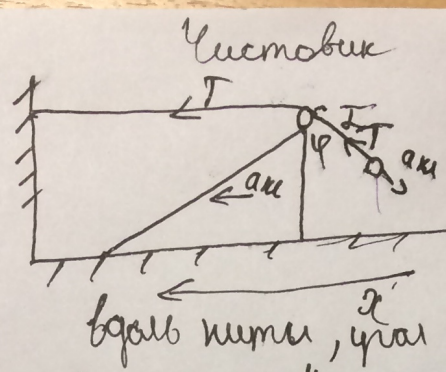 Чистовик
T
T
φ
aкл
aкл
x
вдоль нити, угол